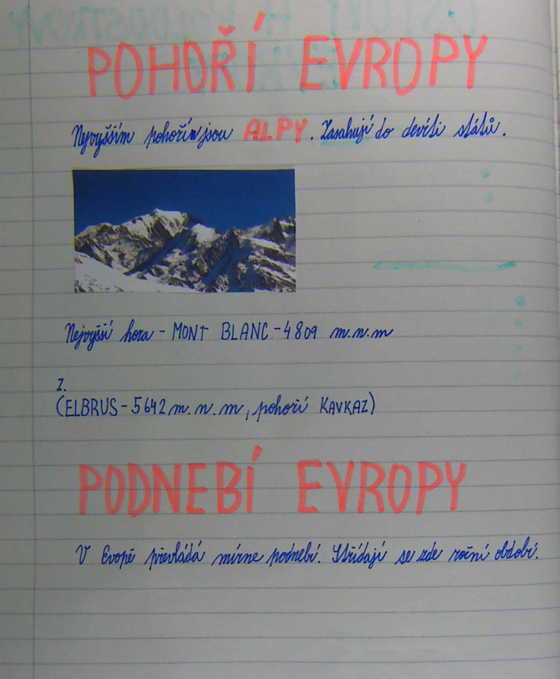 POHOŘÍ EVROPY
Nejvyšším pohořím jsou ALPY. Zasahují do devíti států.
Nejvyšší hora - MONT BLANC - 4809 m.n.m
Z.
(ELBRUS - 5642 m.n.m, pohoří KAVKAZ)
PODNEBÍ EVROPY
V Evopě převládá mírne podnebí. Střídají se zde roční období.